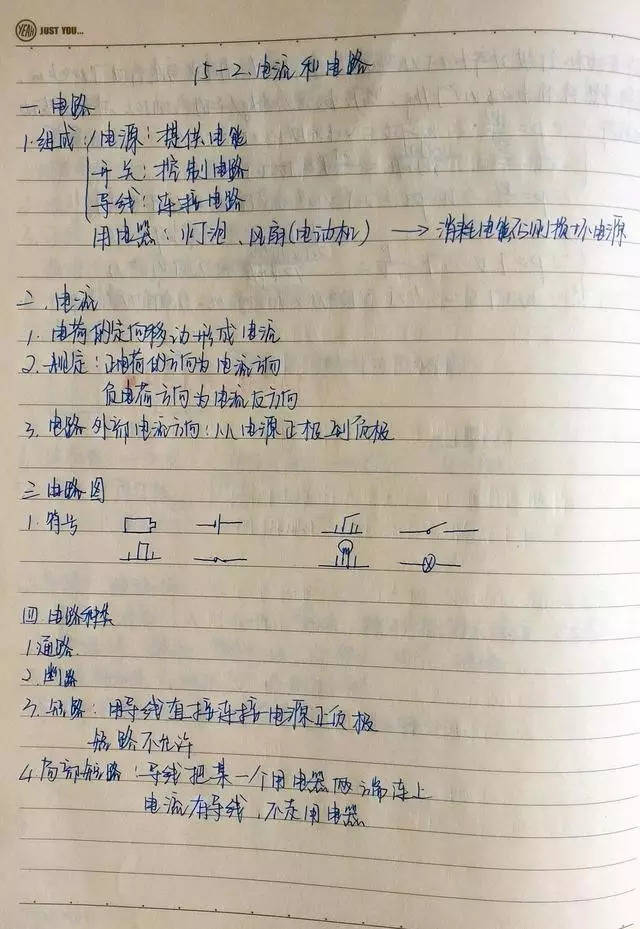 YEAH JUST YOU...
15-2.电流和电路
一.电路
1.组成:电源:提供电能
开关:控制电路
导线:连接电路
用电器:灯泡、风扇(电动机) → 消耗电能否则损坏电源
二.电流
1.电荷的定向移动形成电流
2.规定:正电荷的方向为电流方向
负电荷方向为电流反方向
3.电路外部电流方向:从电源正极到负极
三电路图
1.符号
四电路种类
1.通路
2.断路
3.短路:用导线直接连接电源正负极
短路不允许
4.局部短路:导线把某一个用电器两端连上
电流有导线,不走用电器